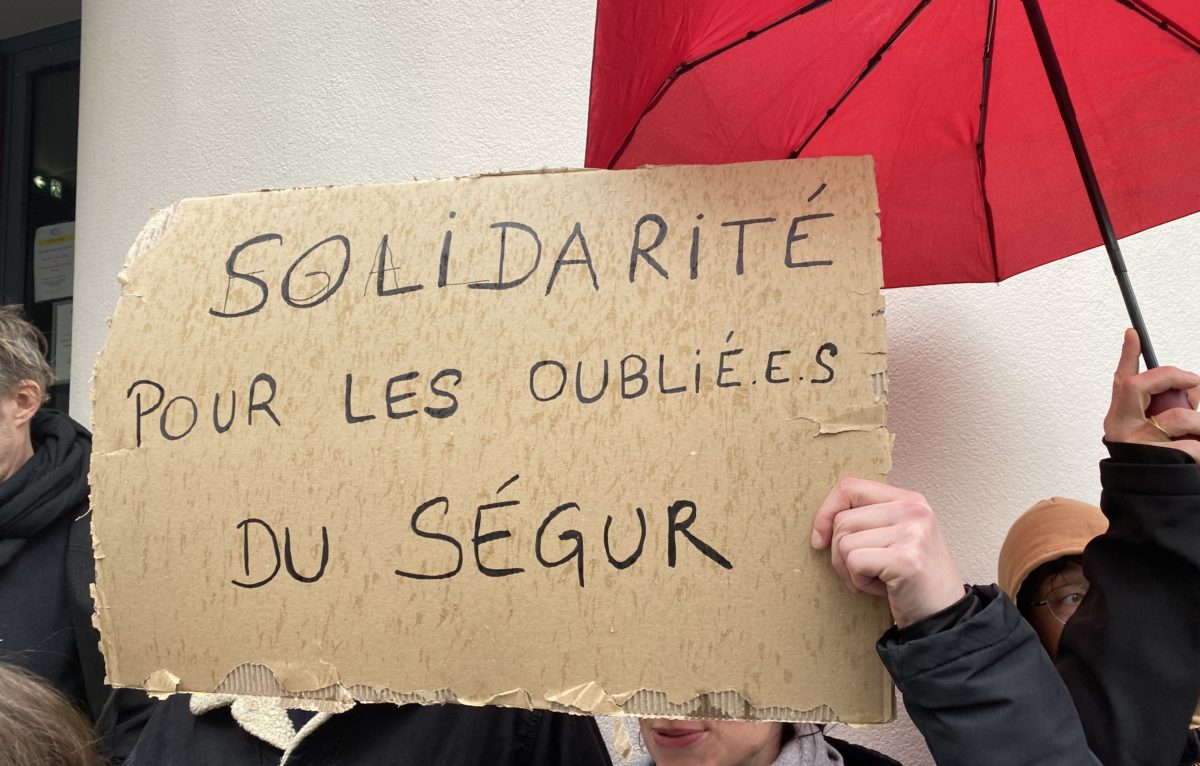 SOLIDARITÉ
POUR LES OUBLIÉ.E.S
DU SÉGUR